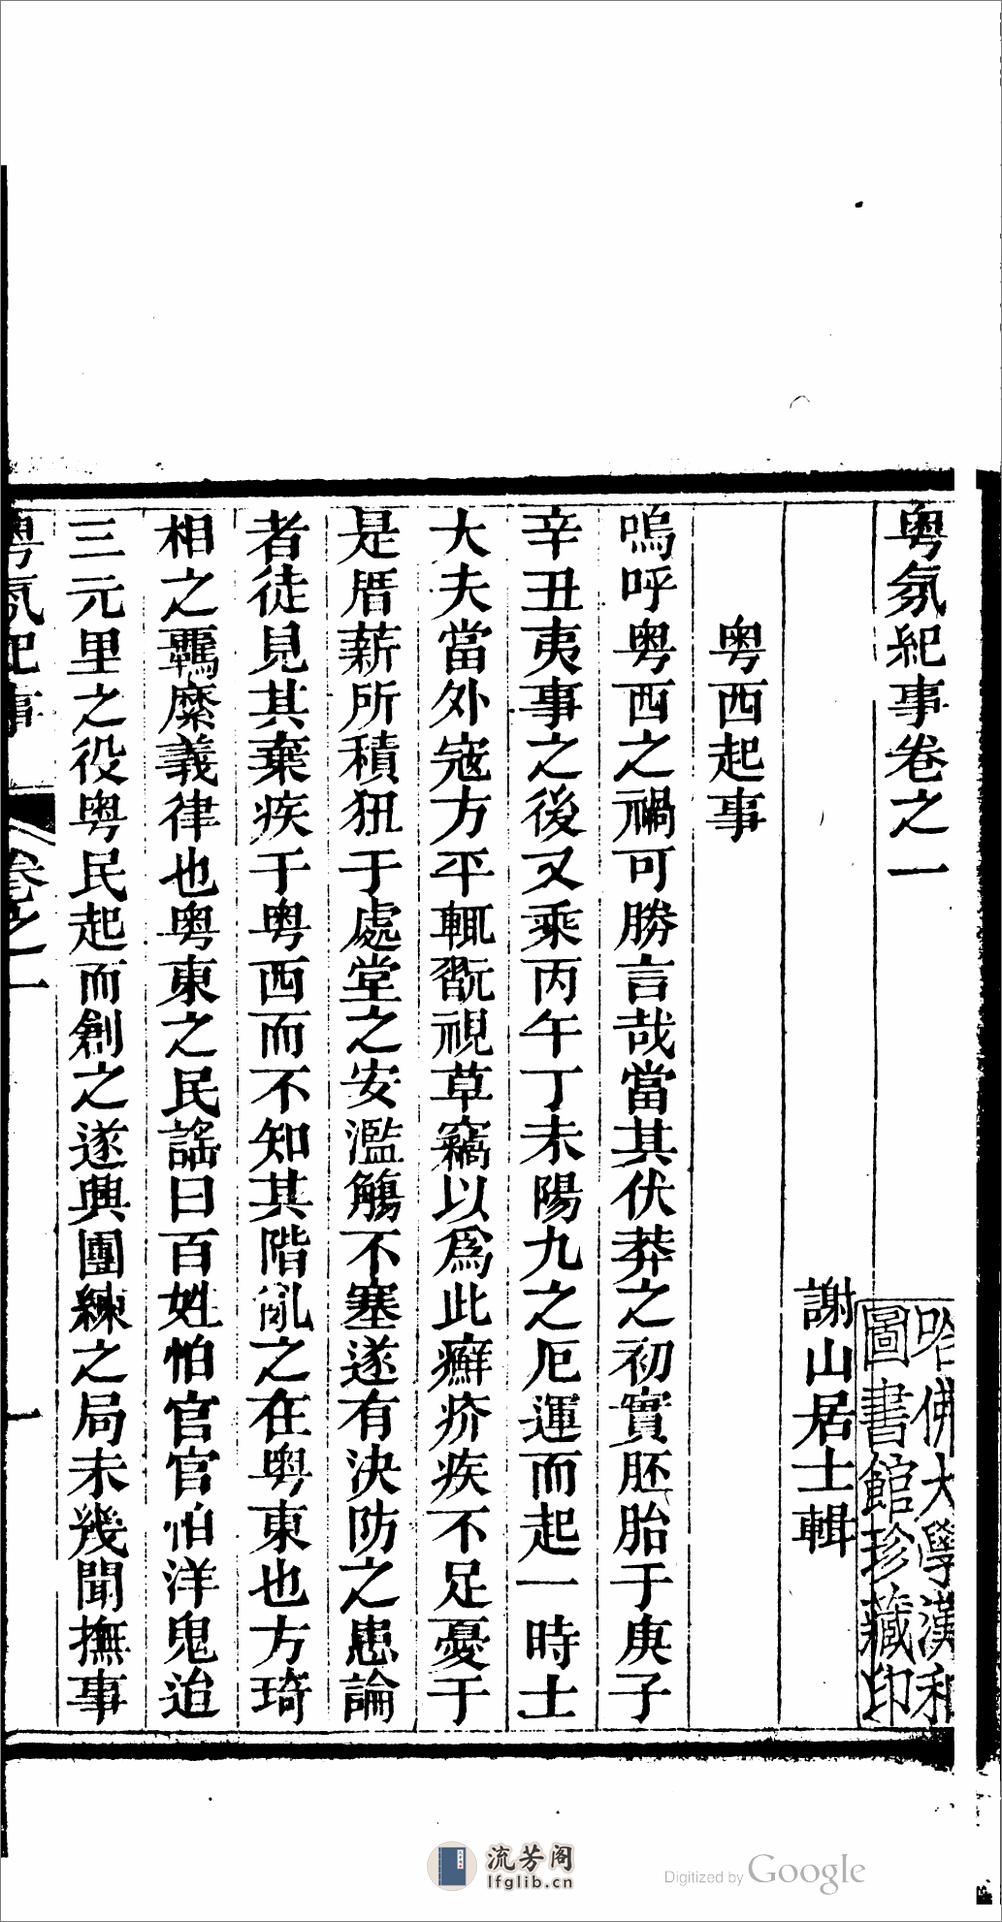 粵氛紀事卷之一
哈佛大學漢和
圖書館珍藏印
謝山居士輯
粵西起事
嗚呼粵西之禍可勝言哉當其伏莽之初實胚胎于庚子
辛丑夷事之後又乘丙午丁未陽九之厄運而起一時士
大夫當外寇方平輒翫視草竊以爲此癬疥疾不足憂于
是厝薪所積狃于處堂之安濫觴不塞遂有決防之患論
者徒見其棄疾于粵西而不知其階亂之在粵東也方琦
相之羈縻義律也粵東之民謠曰百姓怕官官怕洋鬼迨
三元里之役粵民起而創之遂興團練之局未幾聞撫事
粵氛紀事
卷之一
一
流芳阁
lfglib.cn
Digitized by Google